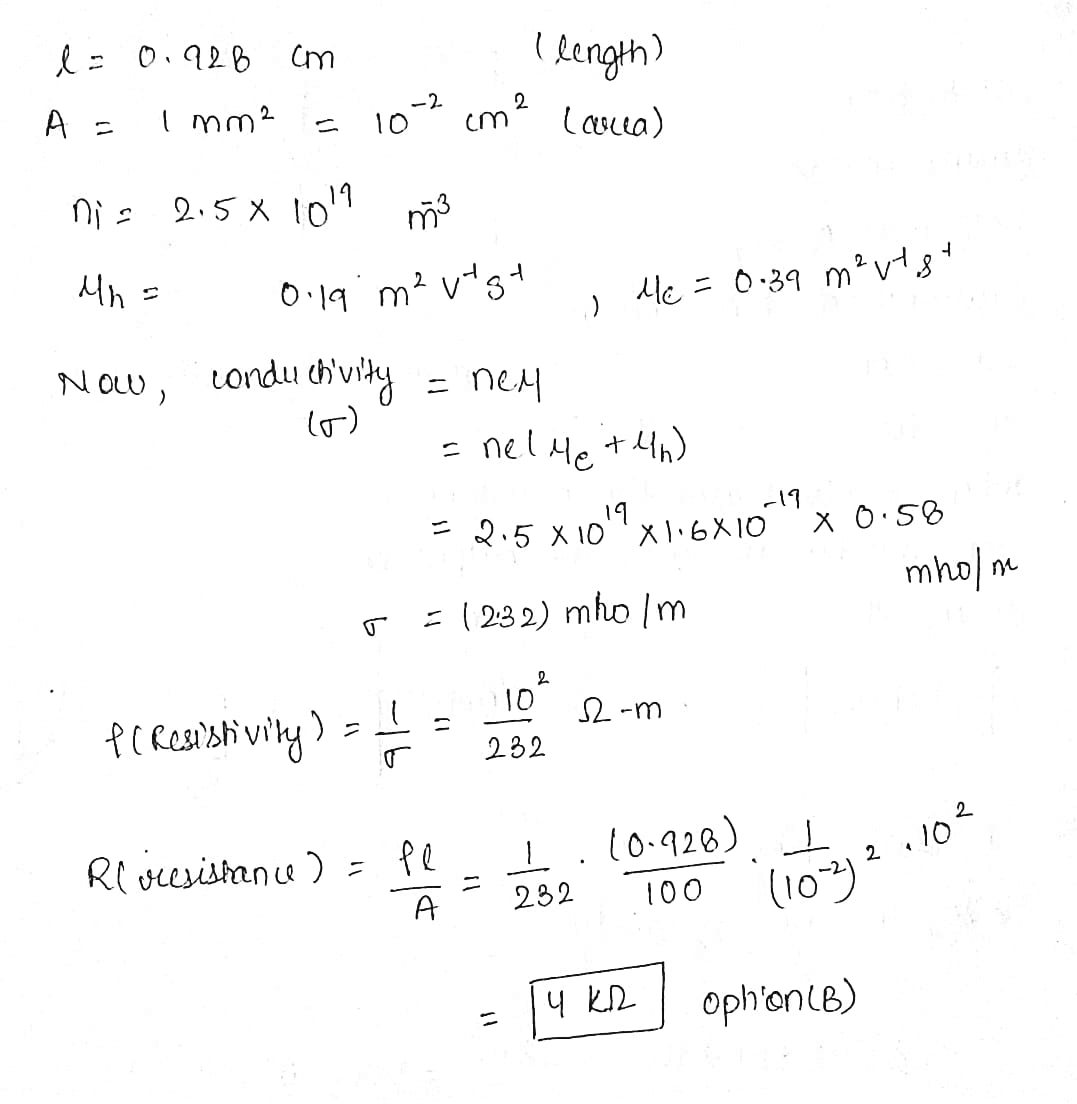 l = 0.928 cm (length)
A = 1 mm² = 10⁻² cm² (area)
ni = 2.5 × 10¹⁹ m⁻³
μh = 0.19 m² v⁻¹ s⁻¹ , μe = 0.39 m² v⁻¹ s⁻¹
Now, conductivity = neμ
(σ)
= ne(μe + μh)
= 2.5 × 10¹⁹ × 1.6 × 10⁻¹⁹ × 0.58
mho/m
σ = (2.32) mho/m
ρ(Resistivity) = 1/σ = 10²/232 Ω-m
R(resistance) = ρl/A = 1/232 . (0.928)/100 . 1/(10⁻²)² . 10²
= 4 kΩ option(B)